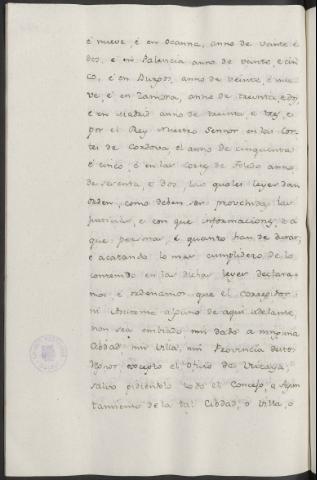 é nueve, é en Ocanna, anno de vante é
dos, é en Palencia anno de vante, é cin
co, é en Burgos, anno de veinte, é nue
ve, é en Zamora, anno de treynta, é dos,
é en Madrid anno de treinta, é tres, é
por el Rey Nuestro Sennor en las Cor
tes de Cordova, el anno de cinquenta
é cinco, é en las cortes de Toledo anno
de sesenta, é dos, las quales leyes dan
orden, como deben ser proveidas las
justicias, e con que informaciones, é á
que personas, é quanto han de durar,
é acatando lo mas cumplidero de lo
contenido en las dichas leyes declara
mos, é ordenamos que el corregidor
ni Asistente alguno de aqui adelante,
non sea embiado, nin dado a ninguna
Cibdad nin Villa, nin Provincia de los
Regnos, excepto el Oficio de Vizcaya,
salvo pidiéndolo todo el Concejo, o Ayun
tamiento de la tal Cibdad, o Villa, o